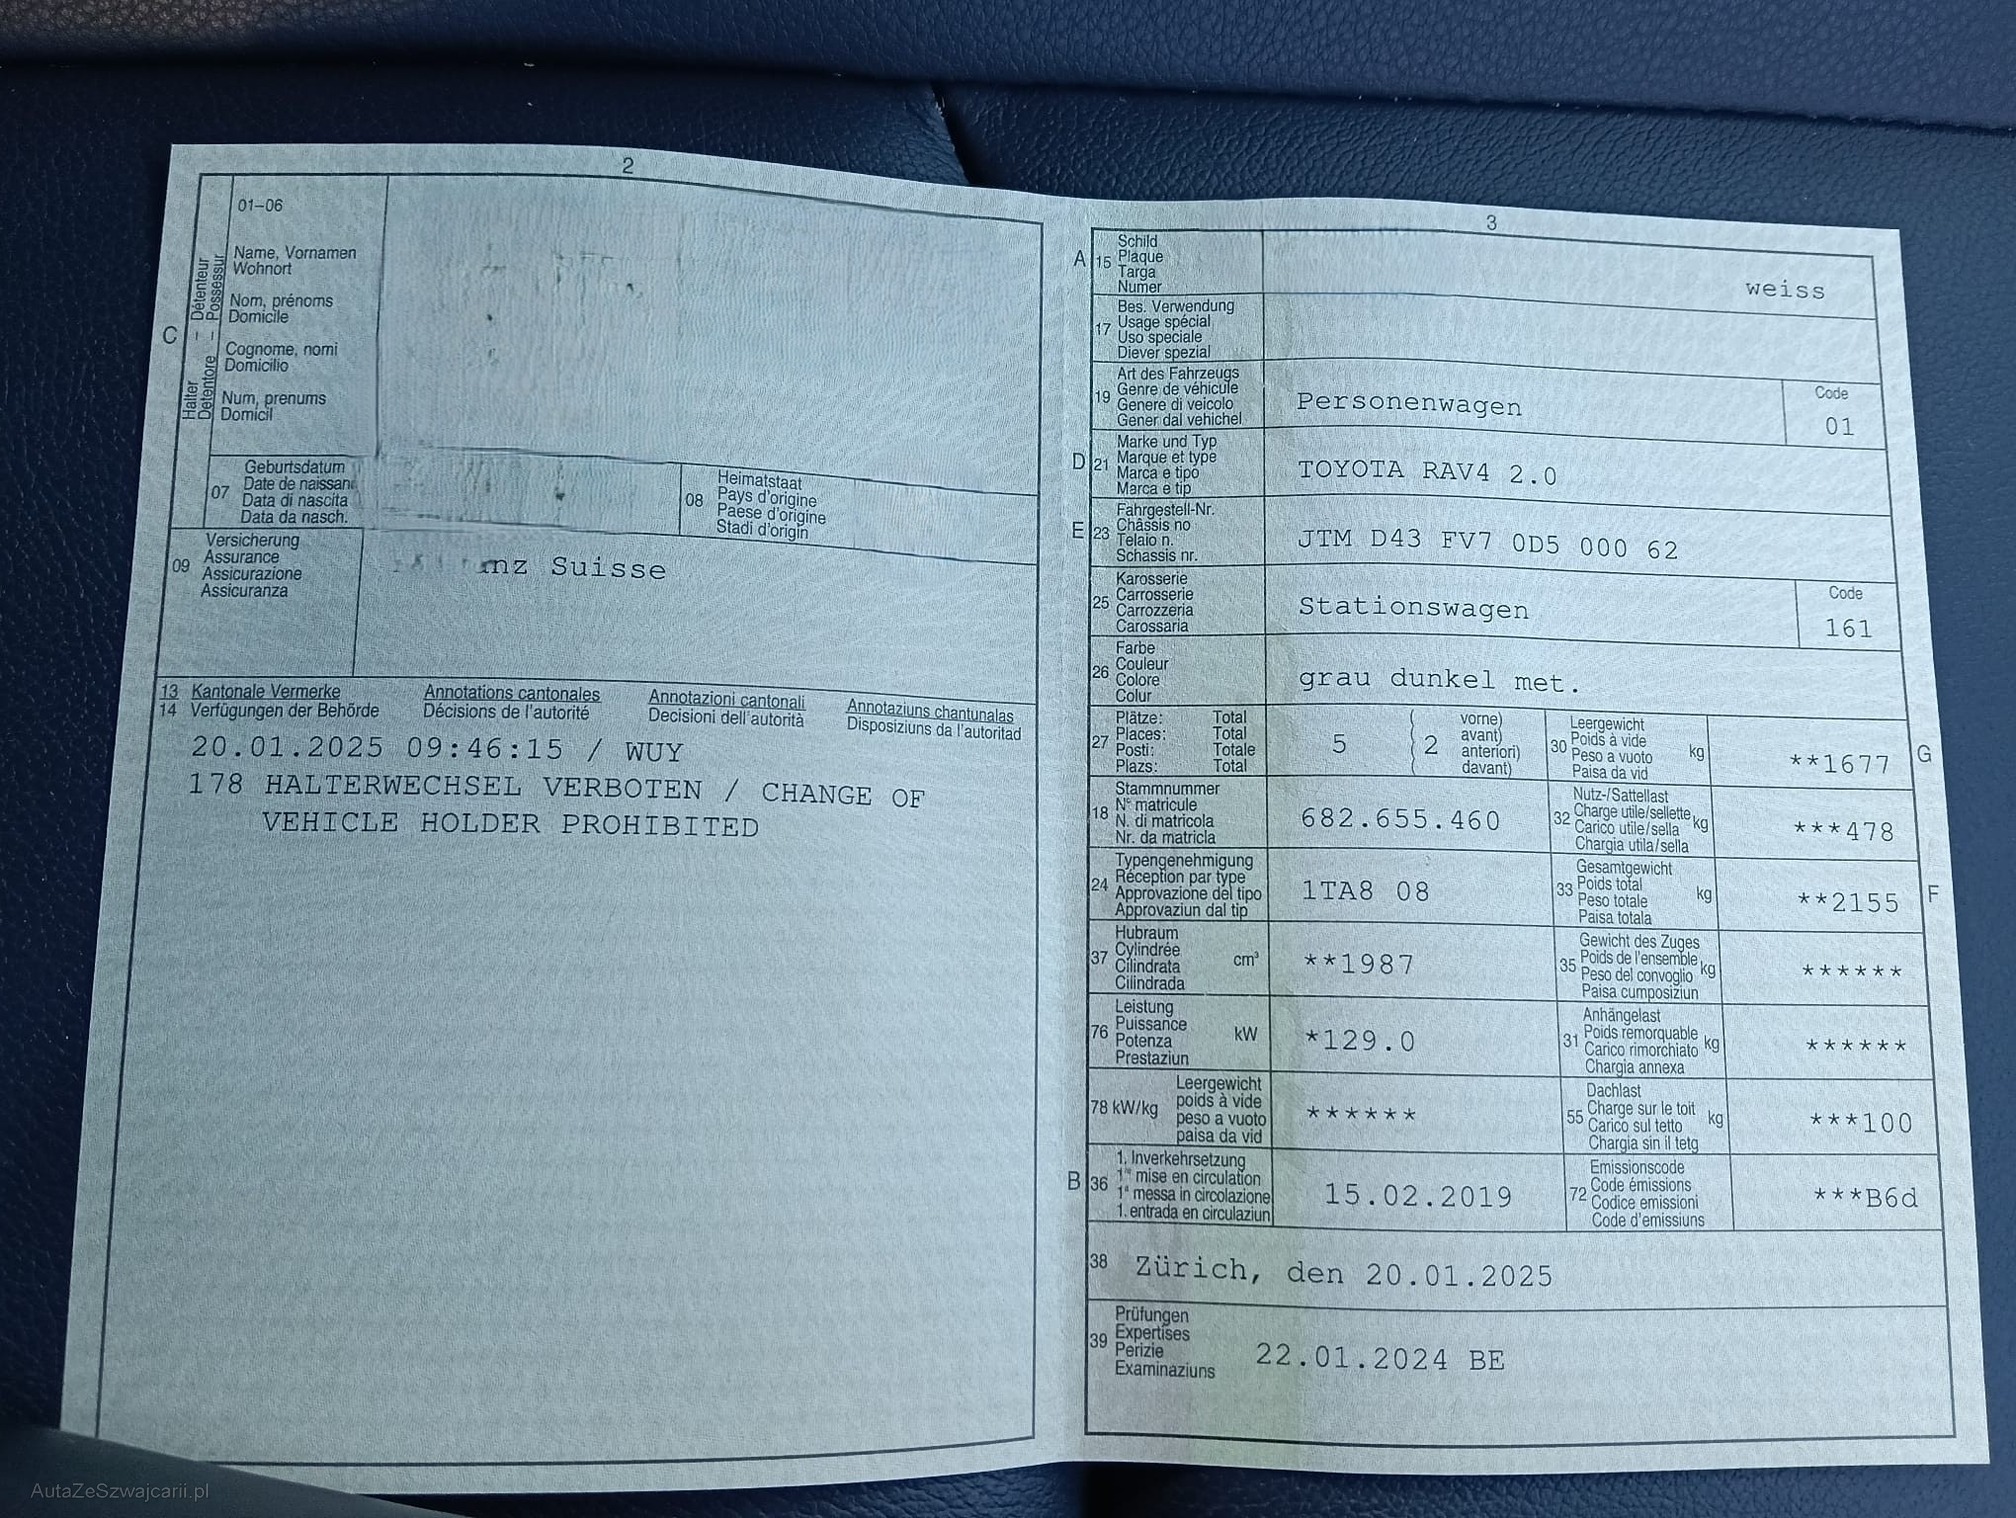 2
01–06
Name, Vornamen
Wohnort
Nom, prénoms
Domicile
Cognome, nomi
Domicilio
Num, prenums
Domicil
C
Halter – Détenteur
Detentore – Possessur
07
Geburtsdatum
Date de naissan
Data di nascita
Data da nasch.
08
Heimatstaat
Pays d'origine
Paese d'origine
Stadi d'origin
09
Versicherung
Assurance
Assicurazione
Assicuranza
Suisse
13 Kantonale Vermerke Annotations cantonales Annotazioni cantonali Annotaziuns chantunalas
14 Verfügungen der Behörde Décisions de l'autorité Decisioni dell'autorità Disposiziuns da l'autoritad
20.01.2025 09:46:15 / WUY
178 HALTERWECHSEL VERBOTEN / CHANGE OF
VEHICLE HOLDER PROHIBITED
3
A 15
Schild
Plaque
Targa
Numer
weiss
17
Bes. Verwendung
Usage spécial
Uso speciale
Diever spezial
19
Art des Fahrzeugs
Genre de véhicule
Genere di veicolo
Gener dal vehichel
Personenwagen
Code
01
D 21
Marke und Typ
Marque et type
Marca e tipo
Marca e tip
TOYOTA RAV4 2.0
E 23
Fahrgestell-Nr.
Châssis no
Telaio n.
Schassis nr.
JTM D43 FV7 0D5 000 62
25
Karosserie
Carrosserie
Carrozzeria
Carossaria
Stationswagen
Code
161
26
Farbe
Couleur
Colore
Colur
grau dunkel met.
27
Plätze: Total
Places: Total
Posti: Totale
Plazs: Total
5
2
vorne)
avant)
anteriori)
davant)
30
Leergewicht
Poids à vide
Peso a vuoto
Paisa da vid
kg
**1677
G
18
Stammnummer
N° matricule
N. di matricola
Nr. da matricla
682.655.460
32
Nutz-/Sattellast
Charge utile/sellette
Carico utile/sella
Chargia utila/sella
kg
***478
24
Typengenehmigung
Réception par type
Approvazione del tipo
Approvaziun dal tip
1TA8 08
33
Gesamtgewicht
Poids total
Peso totale
Paisa totala
kg
**2155
F
37
Hubraum
Cylindrée
Cilindrata
Cilindrada
cm³
**1987
35
Gewicht des Zuges
Poids de l'ensemble
Peso del convoglio
Paisa cumposiziun
kg
******
76
Leistung
Puissance
Potenza
Prestaziun
kW
*129.0
31
Anhängelast
Poids remorquable
Carico rimorchiato
Chargia annexa
kg
******
78 kW/kg
Leergewicht
poids à vide
peso a vuoto
paisa da vid
******
55
Dachlast
Charge sur le toit
Carico sul tetto
Chargia sin il tetg
kg
***100
B 36
1. Inverkehrsetzung
1re mise en circulation
1a messa in circolazione
1. entrada en circulaziun
15.02.2019
72
Emissionscode
Code émissions
Codice emissioni
Code d'emissiuns
***B6d
38
Zürich, den 20.01.2025
39
Prüfungen
Expertises
Perizie
Examinaziuns
22.01.2024 BE
AutaZeSzwajcarii.pl